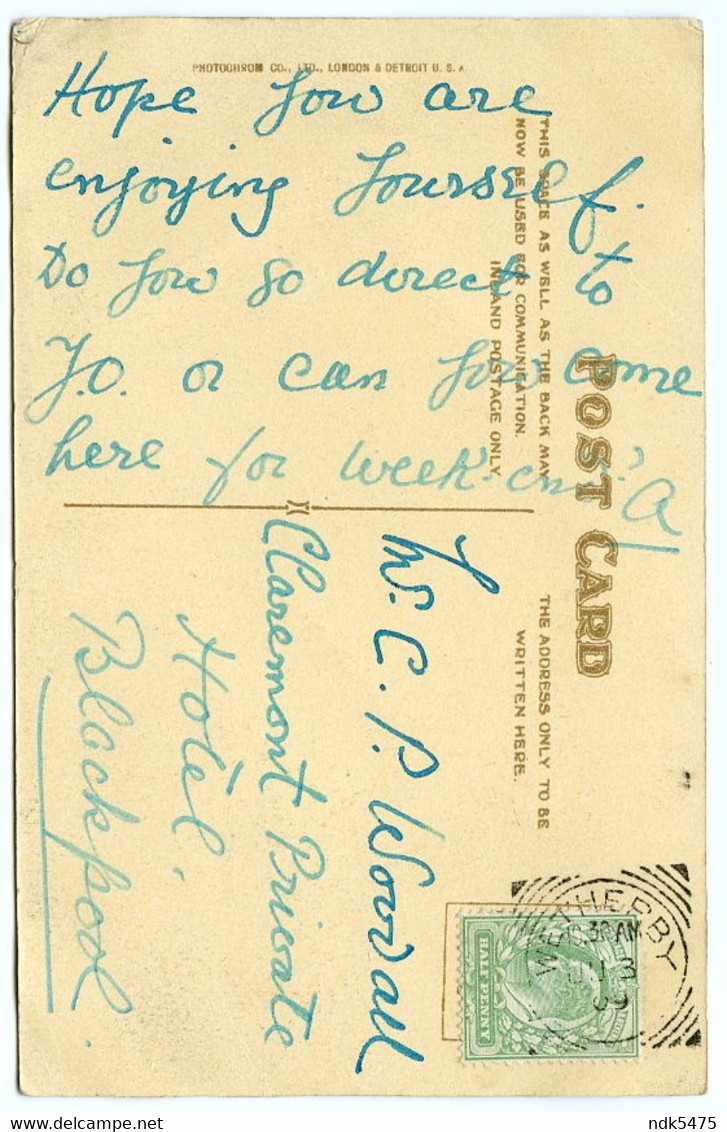 PHOTOCHROM CO., LTD., LONDON & DETROIT U. S. A
Hope you are
enjoying yourself.
Do you go direct to
J.O. or can you come
here for week-end? A
POST CARD
THIS SPACE AS WELL AS THE BACK MAY
NOW BE USED FOR COMMUNICATION.
INLAND POSTAGE ONLY.
THE ADDRESS ONLY TO BE
WRITTEN HERE.
C. P. Woodall
Claremont Private
Hotel,
Blackpool.
WETHERBY
AM
3
09
HALF PENNY
ndk5475